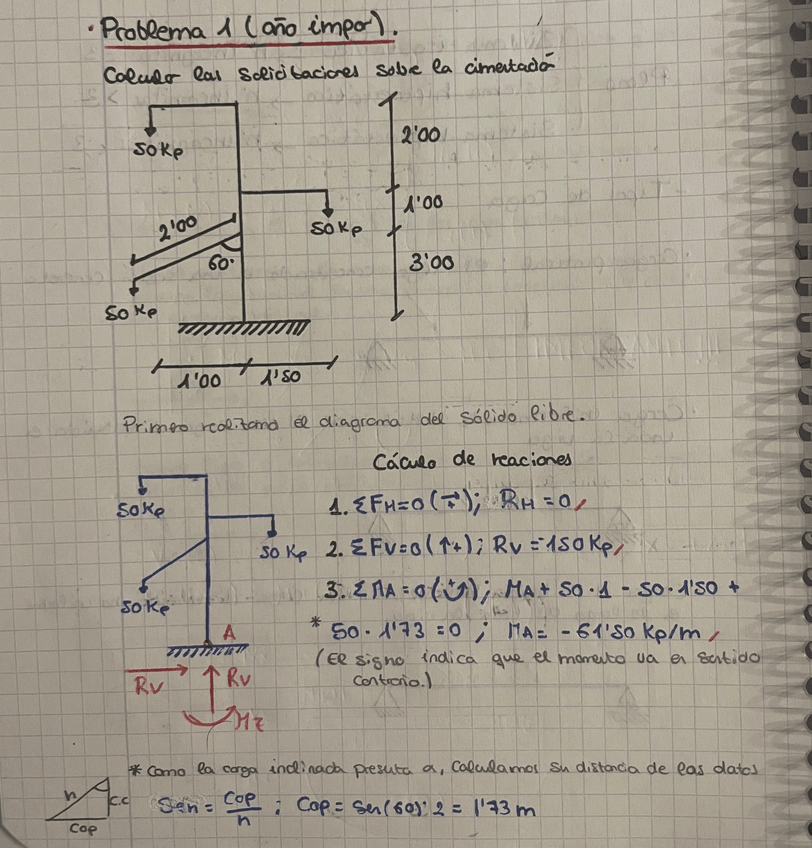 · Problema 1 (año impar).
Calcular las solicitaciones sobre la cimentación
50 Kp
2'00
1'00
50 Kp
2'00
60°
3'00
50 Kp
1'00 1'50
Primero realizamo el diagrama del sólido libre.
Cáculo de reaciones
50 Kp
1. ΣFH=0 (→+); RH = 0,
50 Kp
2. ΣFV=0 (↑+); RV = 150 Kp,
3. ΣMA = 0 (↺+); MA + 50·1 - 50·1'50 +
50 Kp
* 50·1'73 = 0 ; MA = - 61'50 Kp/m,
A
(El signo indica que el momento va en sentido
contrario.)
RV RV
Mz
* Como la carga inclinada presenta α, calculamos su distancia de los datos
h c.c
cop
Sen = cop/h ; Cop = sen(60)·2 = 1'73 m